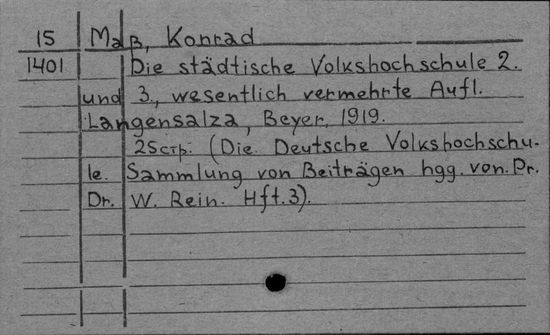 15 Maß, Konrad
1401 Die städtische Volkshochschule 2.
und 3., wesentlich vermehrte Aufl.
Langensalza, Beyer, 1919.
25стр. (Die Deutsche Volkshochschu-
le. Sammlung von Beiträgen hgg. von. Dr.
Dr. W. Rein. Hft.3).